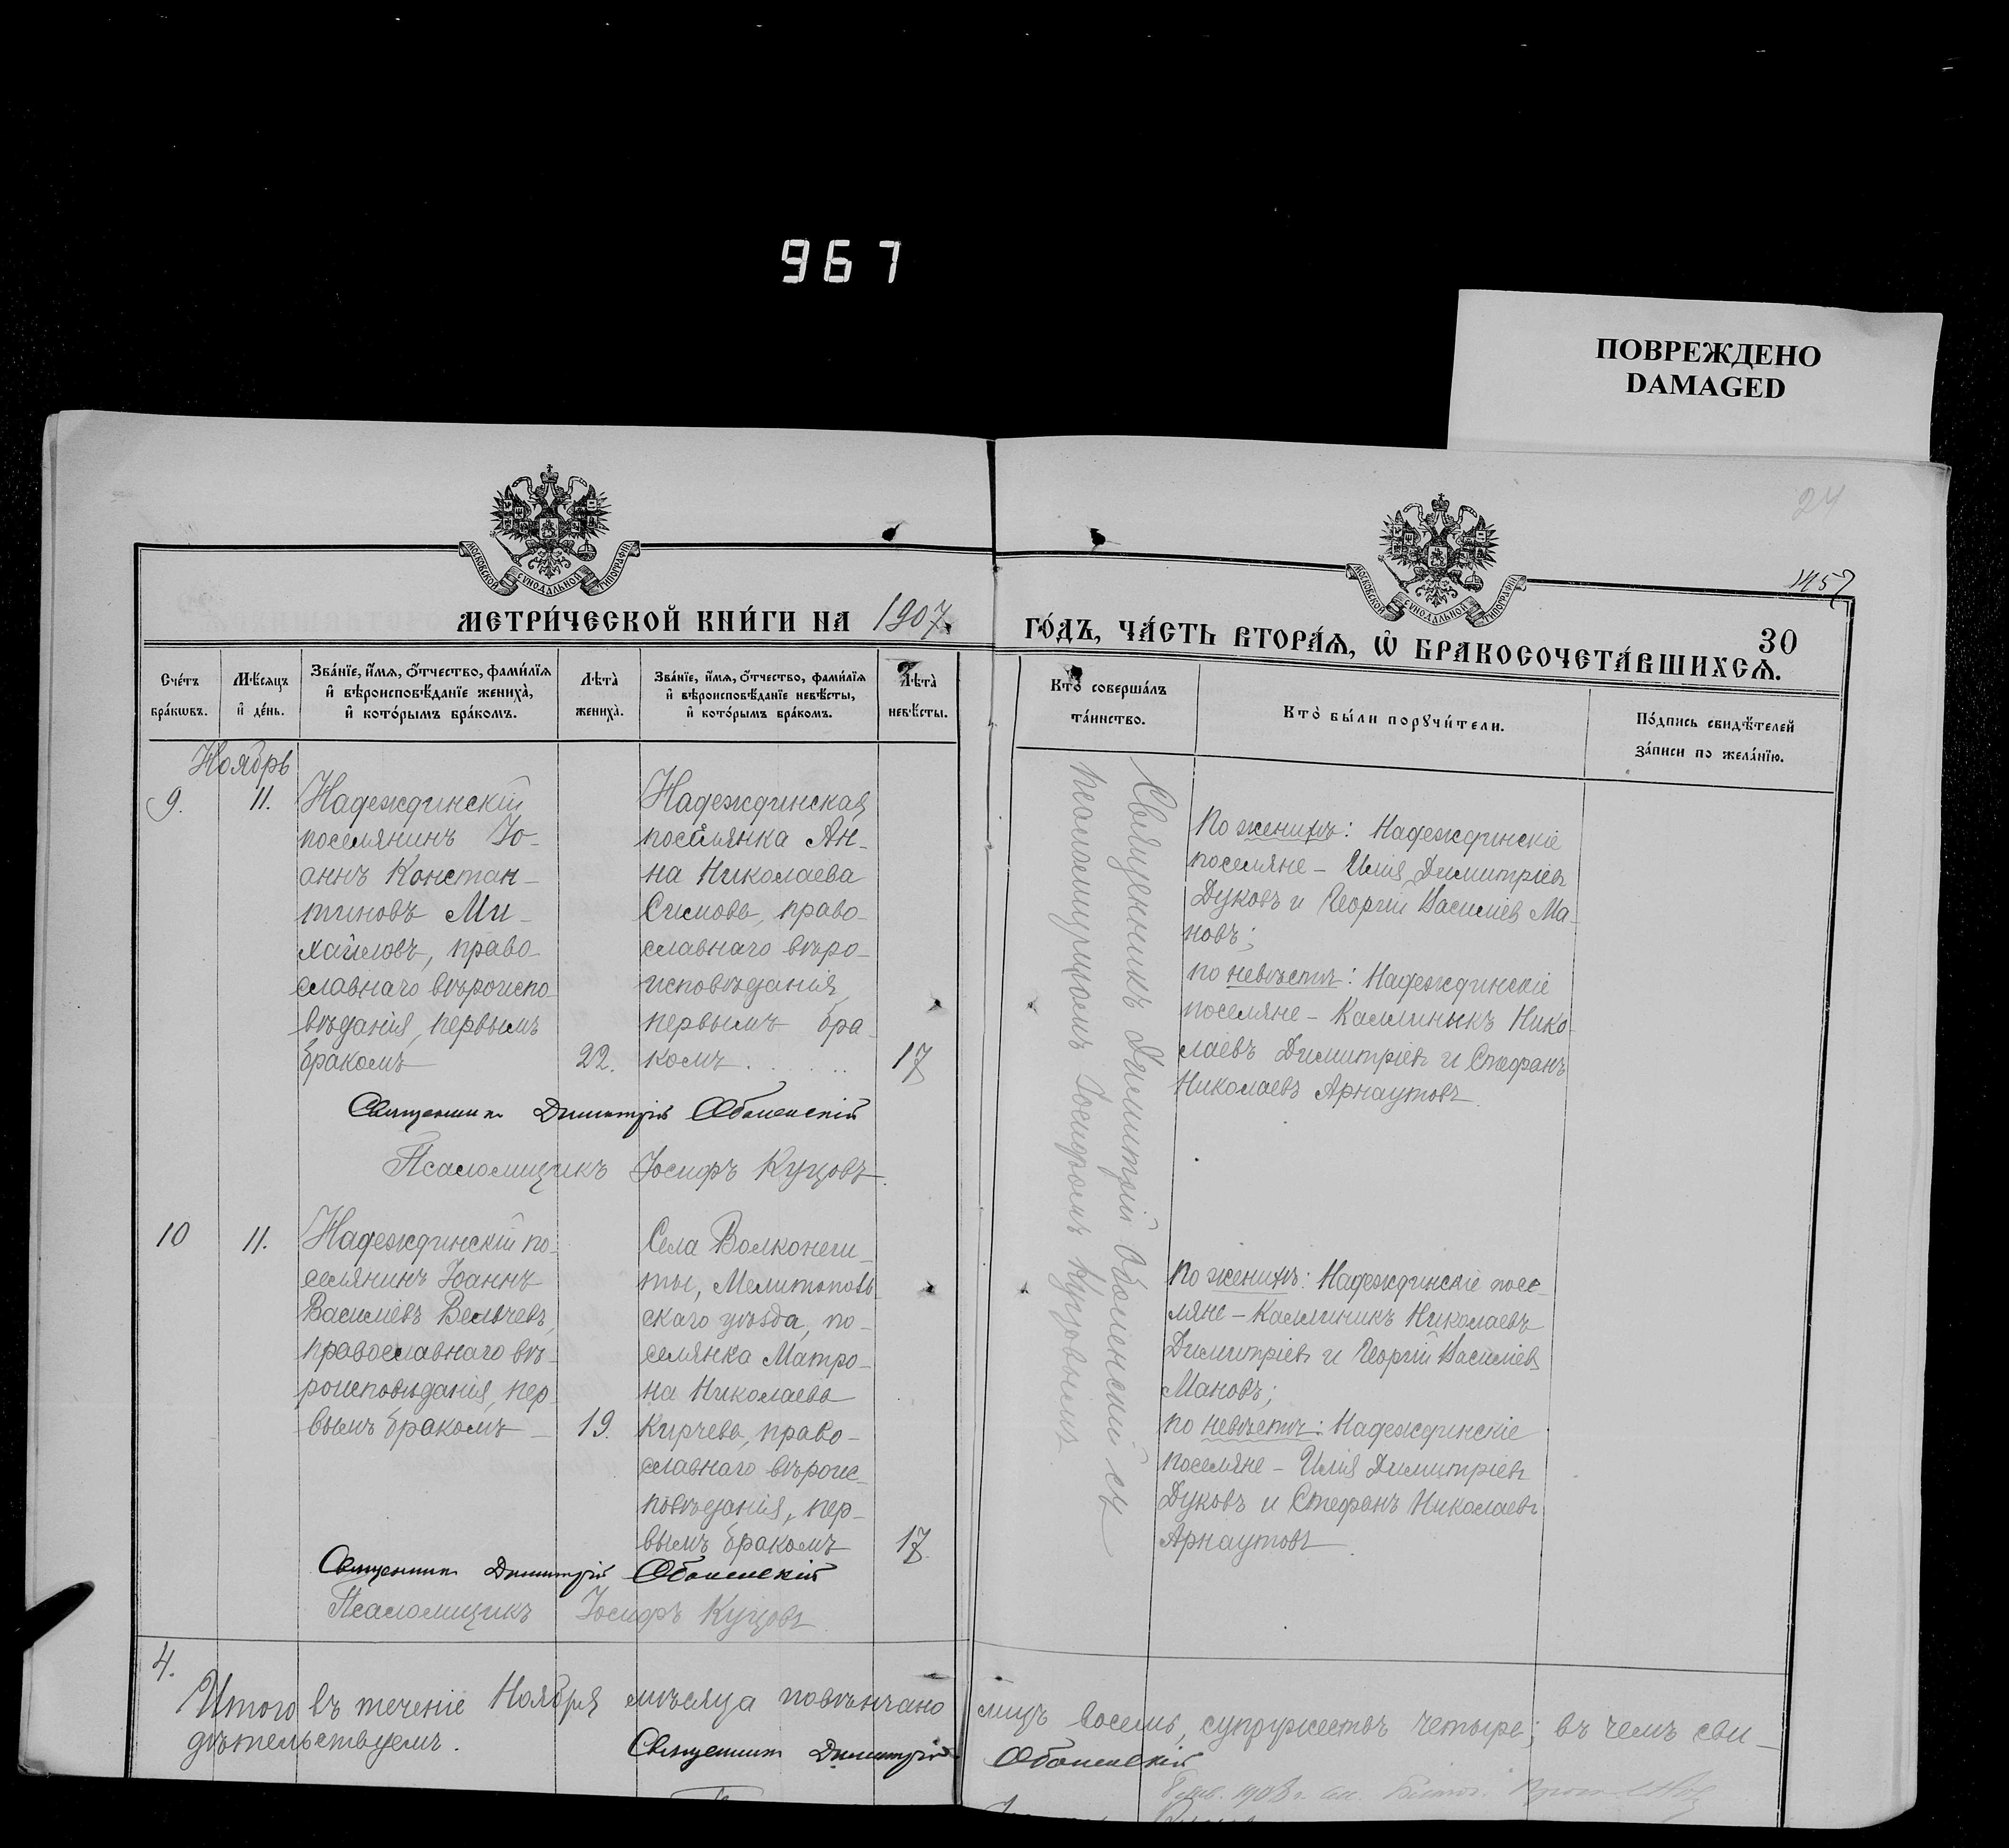 967
ПОВРЕЖДЕНО
DAMAGED
24
МОСКОВСКОЙ СѴНОДАЛЬНОЙ ТИПОГРАФІИ
МОСКОВСКОЙ СѴНОДАЛЬНОЙ ТИПОГРАФІИ
1457
МЕТРИ́ЧЕСКОЙ КНИ́ГИ НА 1907
ГО́ДЪ, ЧА́СТЬ ВТОРА́Ѧ, Ѡ҆ БРАКОСОЧЕТА́ВШИХСѦ.
30
Сче́тъ бра́кѡвъ.
Мѣ́сяцъ и҆ де́нь.
Зва́нїе, и҆́мѧ, ѻ҆́тчество, фами́лїѧ и҆ вѣроисповѣ́данїе жениха̀, и҆ кото́рымъ бра́комъ.
Лѣта̀ жениха̀.
Зва́нїе, и҆́мѧ, ѻ҆́тчество, фами́лїѧ и҆ вѣроисповѣ́данїе невѣ́сты, и҆ кото́рымъ бра́комъ.
Лѣта̀ невѣ́сты.
Кто̀ соверша́лъ та́инство.
Кто̀ бы́ли порꙋчи́тели.
По́дпись свидѣ́телей за́писи по жела́нїю.
Ноябрь
9.
11.
Надеждинскій
поселянинъ Іо-
аннъ Констан-
тиновъ Ми-
хайловъ, право-
славнаго вѣроиспо-
вѣданія, первымъ
бракомъ
22.
Надеждинская
поселянка Ан-
на Николаева
Симова, право-
славнаго вѣро-
исповѣданія,
первымъ бра-
комъ . . . . . .
17
Священникъ Димитрій Оболенскій
Псаломщикъ Іосифъ Куцовъ.
Священникъ Димитрій Оболенскій съ
псаломщикомъ Іосифомъ Куцовымъ.
По женихѣ: Надеждинскіе
поселяне - Илія Димитріевъ
Дуковъ и Георгій Василіевъ Ма-
новъ;
по невѣстѣ: Надеждинскіе
поселяне - Каллиникъ Нико-
лаевъ Димитріевъ и Стефанъ
Николаевъ Арнаутовъ.
10
11.
Надеждинскій по-
селянинъ Іоаннъ
Василіевъ Вельчевъ,
православнаго вѣ-
роисповѣданія, пер-
вымъ бракомъ
19.
Села Волконеш-
ты, Мелитополь-
скаго уѣзда, по-
селянка Матро-
на Николаева
Кирчева, право-
славнаго вѣроис-
повѣданія, пер-
вымъ бракомъ
17.
По женихѣ: Надеждинскіе посе-
ляне - Каллиникъ Николаевъ
Димитріевъ и Георгій Василіевъ
Мановъ;
по невѣстѣ: Надеждинскіе
поселяне - Илія Димитріевъ
Дуковъ и Стефанъ Николаевъ
Арнаутовъ.
Священникъ Димитрій Оболенскій
Псаломщикъ Іосифъ Куцовъ.
4.
Итого въ теченіе Ноября мѣсяца повѣнчано лицъ восемь, супружествъ четыре; въ чемъ сви-
дѣтельствуемъ.
Священникъ Димитрій Оболенскій